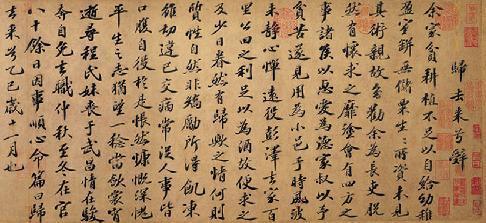 歸去來兮辭
余家貧耕植不足以自給幼稚
盈室缾無儲粟生生所資未見
其術親故多勸余為長吏脫
然有懷求之靡途會有四方之
事諸侯以惠愛為德家叔以予
貧苦遂見用為小邑于時風波
未靜心憚遠役彭澤去家百
里公田之利足以為酒故便求之
及少日眷然有歸歟之情何則
質性自然非矯勵所得飢凍
雖切違己交病嘗從人事皆
口腹自役於是悵然慷慨深愧
平生之志猶望一稔當斂裳宵
逝尋程氏妹喪于武昌情在駿
奔自免去職仲秋至冬在官
八十餘日因事順心命篇曰歸
去來兮乙巳歲十一月也